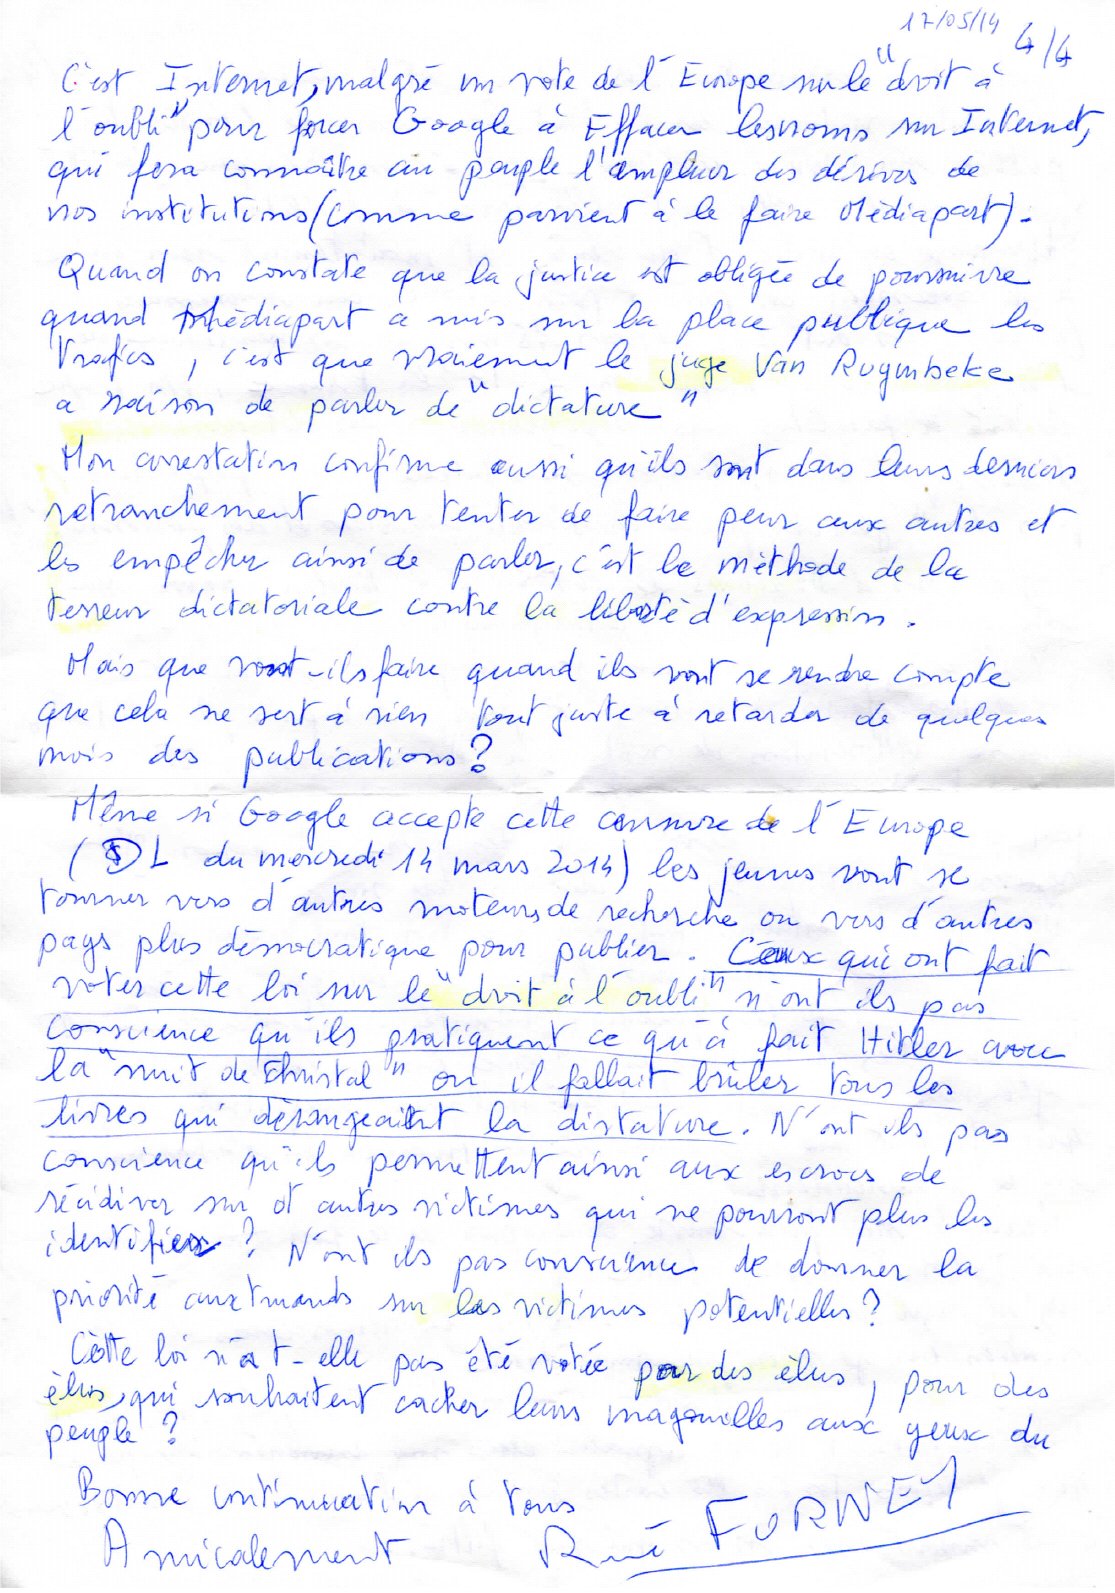 17/05/14 4/4
C'est Internet, malgré un vote de l'Europe sur le "droit à
l'oubli" pour forcer Google à Effacer les noms sur Internet,
qui fera connaître au peuple l'ampleur des dérives de
nos institutions (comme parvient à le faire Médiapart).
Quand on constate que la justice est obligée de poursuivre
quand Médiapart a mis sur la place publique les
trafics, c'est que vraiement le juge Van Ruymbeke
a raison de parler de "dictature"
Mon arrestation confirme aussi qu'ils sont dans leurs derniers
retranchement pour tenter de faire peur aux autres et
les empêcher ainsi de parler, c'est la méthode de la
terreur dictatoriale contre la liberté d'expression.
Mais que vont-ils faire quand ils vont se rendre compte
que cela ne sert à rien tout juste à retarder de quelques
mois des publications?
Même si Google accepte cette censure de l'Europe
(DL du mercredi 14 mars 2014) les jeunes vont se
tourner vers d'autres moteurs de recherche ou vers d'autres
pays plus démocratique pour publier. Ceux qui ont fait
voter cette loi sur le "droit à l'oubli" n'ont ils pas
conscience qu'ils pratiquent ce qu'à fait Hitler avec
la "nuit de Christal" ou il fallait brûler tous les
livres qui dérangeaient la distature. N'ont ils pas
conscience qu'ils permettent ainsi aux escrocs de
récidiver sur d'autres victimes qui ne pourront plus les
identifier? N'ont ils pas conscience de donner la
priorité aux truands sur les victimes potentielles?
Cette loi n'a t-elle pas été votée par des élus, pour des
élus, qui souhaitent cacher leurs magouilles aux yeux du
peuple?
Bonne continuation à tous
Amicalement René FORNEY